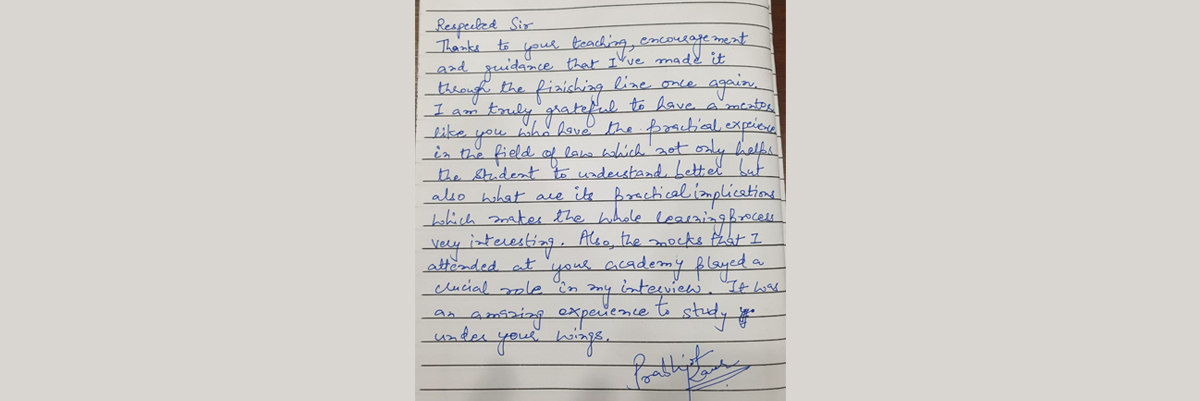 Respected Sir
Thanks to your teaching, encouragement
and guidance that I've made it
through the finishing line once again.
I am truly grateful to have a mentor
like you who have the practical expeience
in the field of law which not only helps
the student to understand better but
also what are its practical implications
which makes the whole learning process
very interesting. Also, the mocks that I
attended at your academy played a
crucial role in my interview. It was
an amazing experience to study
under your wings.
Prabhjot
Kaur